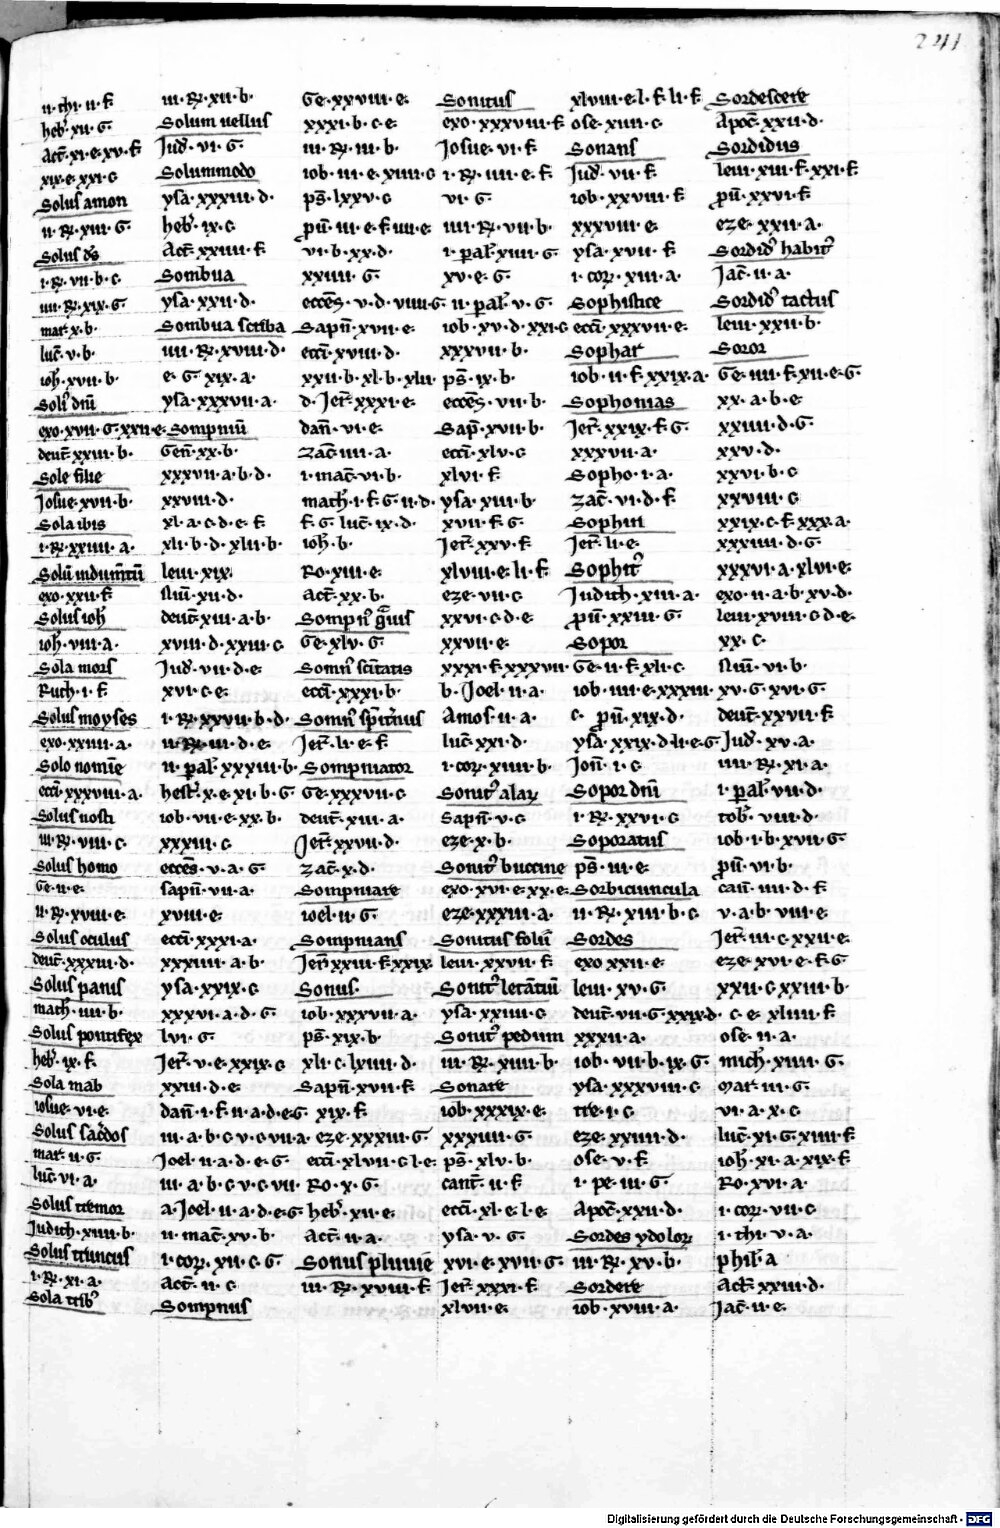 241
ii · thi · ii · f
heb᷒ · xii · G
Act᷒ · xi · e · xv · f
xix · e · xxi · c
Solus amon
ii · R · xiii · G
Solus d᷒s
i · R · vii · b · c
iiii · R · xix · G
mat · x · b ·
luc᷒ · v · b ·
ioh᷒ · xvii · b ·
Soli᷒ dn̄i
exo · xvii · G · xxii · e ·
deut᷒ · xxiii · b ·
Sole filie
Josue · xvii · b ·
Sola ibis
i · R · xxiiii · a ·
Solū indumētū
exo · xxii · f
Solus ioh᷒
ioh᷒ · viii · a ·
Sola mors
Ruth · i · f
Solus moyses
exo · xxiiii · a ·
Solo nomīe
ecci᷒ · xxxviii · a ·
Solus nosti
iii · R · viii · c ·
Solus homo
Ge · ii · e ·
ii · R · xviii · e ·
Solus oculus
deut᷒ · xxxiii · d ·
Solus panis
math᷒ · iiii · b ·
Solus pontifex
heb᷒ · ix · f ·
Sola mab
iosue · vi · e ·
Solus sac᷒dos
mat · ii · G ·
luc᷒ · vi · a ·
Solus tremor
Judith · xiiii · b ·
Solus truncus
i · R · xi · a ·
Sola trib᷒
iii · R · xii · b ·
Solum uellus
Jud᷒ · vi · G
Solummodo
ysa · xxxiii · d ·
heb᷒ · ix · c
Act᷒ · xxiiii · f
Sombua
ysa · xxii · d ·
Sombua scriba
iiii · R · xviii · d ·
e · G · xix · a ·
ysa · xxxvii · a ·
Sompniū
Gen᷒ · xx · b ·
xxxvii · a · b · d ·
xxviii · d ·
xl · a · c · d · e · f
xli · b · d · xlii · b ·
leui · xix ·
Nūi · xii · d ·
deut᷒ · xiii · a · b ·
xviii · d · xxiii · c
Jud᷒ · vii · d · e ·
xvi · c · e ·
i · R · xxvii · b · d ·
ii · R · iii · d · e ·
ii · pal᷒ · xxxiii · b ·
hest᷒ · x · e · xi · b · G
iob · vii · e · xx · b ·
xxxiii · c
ecces᷒ · v · a · G ·
sapn̄ · vii · a ·
xviii · e ·
ecci᷒ · xxxi · a ·
xxxiiii · a · b ·
ysa · xxix · c
xxxvi · a · d · G
lvi · G
Jer᷒ · v · e · xxix · c
xxiii · d · e ·
dan̄ · i · f · ii · a · d · e · G
iii · a · b · c · v · c · vii · a ·
Joel · ii · a · d · e · G ·
iii · a · b · c · v · c · vii ·
a · Joel · ii · a · d · e · G
ii · mac᷒ · xv · b ·
i · cor᷒ · xii · c · G ·
Act᷒ · ii · c
Sompnus
Ge · xxviii · e ·
xxxi · b · c · e ·
iii · R · iii · b ·
iob · iii · e · xiiii · c
ps᷒ · lxxv · c
pū · iii · e · f · iiii · e ·
vi · b · xx · d ·
xxiiii · G
ecces᷒ · v · d · viiii · G
Sapn̄ · xvii · e ·
ecci᷒ · xviii · d ·
xxii · b · xl · b · xlii ·
d · Jer᷒ · xxxi · e ·
dan̄ · vi · e ·
zac᷒ · iiii · a ·
i · mac᷒ · vi · b ·
math᷒ · i · f · G · ii · d ·
f · G · luc᷒ · ix · d ·
ioh᷒ · b ·
Ro · xiii · e ·
Act᷒ · xx · b ·
Sompn᷒ g̃uis
Ge · xlv · G ·
Somn᷒ sc̄itatis
ecci᷒ · xxxi · b ·
Somn᷒ sp̄it᷒nus
Jer᷒ · li · e · f
Sompniator
Ge · xxxvii · c
deut᷒ · xiii · a ·
Jer᷒ · xxvii · d ·
zac᷒ · x · d ·
Sompniare
ioel · ii · G ·
Sompnians
Jer᷒ xxiii · f · xxix ·
Sonus ·
iob · xxxvii · a ·
ps᷒ · xix · b ·
xli · c · lxiii · d ·
Sapn̄ · xvii · f ·
xix · f ·
eze · xxxiii · G
ecci᷒ · xlvii · c · l · e ·
Ro · x · G ·
heb᷒ · xii · e ·
Act᷒ · ii · a ·
Sonus pluuīe
iii · R · xviii · f
Sonitus
exo · xxxviii · f
Josue · vi · f
i · R · iiii · e · f
vi · G ·
iiii · R · vii · b ·
i · pal᷒ · xiiii · G
xv · e · G ·
ii · pal᷒ · v · G
iob · xv · d · xxi · c
xxxvii · b ·
ps᷒ · ix · b ·
ecces᷒ · vii · b ·
Sap᷒ · xvii · b ·
ecci᷒ · xlv · c
xlvi · f
ysa · xiii · b ·
xvii · f · G ·
Jer᷒ · xxv · f
xlviii · e · li · f
eze · vii · c
xxvi · c · d · e ·
xxvii · e ·
xxxi · f · xxxvii ·
b · Joel · ii · a ·
Amos · ii · a ·
luc᷒ · xxi · d ·
i · cor᷒ · xiiii · b ·
Sonit᷒ alar᷒
Sapn̄ · v · c
eze · x · b ·
Sonit᷒ buccine
exo · xvi · e · xx · e ·
eze · xxxiii · a ·
Sonitus folii᷒
leui · xxvii · f ·
Sonit᷒ letātiū
ysa · xxiiii · c
Sonit᷒ pedum
iii · R · xiiii · b ·
Sonare
iob · xxxix · e ·
xxxviii · G ·
ps᷒ · xlv · b ·
cant᷒ · ii · f
ecci᷒ · xl · e · l · e ·
ysa · v · G ·
xvi · e · xvii · G ·
Jer᷒ · xxxi · f ·
xlvii · e ·
xlviii · e · l · f · li · f
ose · xiiii · c
Sonans
Jud᷒ · vii · f
iob · xxviii · f
xxxviii · e
ysa · xvii · f
i · cor᷒ · xiii · a ·
Sophistice
ecci᷒ · xxxvii · e ·
Sophar
iob · ii · f · xxix · a ·
Sophonias
Jer᷒ · xxix · f · G ·
xxxvii · a ·
Sopho · i · a ·
zac᷒ · vi · d · f
Sophin
Jer᷒ · li · e ·
Sophit᷒
Judith · xiii · a ·
pū · xxiii · G ·
Sopor
Ge · ii · f · xli · c
iob · iiii · e · xxxiii ·
c · pū · xix · d ·
ysa · xxix · d · li · e · G
Jon̄ · i · c
Sopor dn̄i
i · R · xxvi · c
Soporatus
ps᷒ · iii · e ·
Sorbiciuncula
ii · R · xiii · b · c
Sordes
exo xxii · e ·
leui · xv · G ·
deut᷒ · vii · G · xxix · d ·
xxxii · a ·
iob · vii · b · ix · G ·
ysa · xxxviii · c
tre · i · c
eze · xxiiii · d ·
ose · v · f ·
i · pe · iii · G
Apoc᷒ · xxii · d ·
Sordes ydolor᷒
iii · R · xv · b ·
Sordere
iob · xviii · a ·
Sordescere
Apoc᷒ · xxii · d ·
Sordidus
leui · xiii · f · xxi · f
pū · xxvi · f ·
eze · xxii · a ·
Sordid᷒ habit᷒
Jac᷒ · ii · a ·
Sordid᷒ tactus
leui · xxii · b ·
Soror
Ge · iiii · f · xii · e · G
xx · a · b · e
xxiiii · d · G
xxv · d ·
xxvi · b · c
xxviii · c
xxix · c · f · xxx · a ·
xxxiiii · d · G
xxxvi · a · xlvi · e ·
exo · ii · a · b · xv · d ·
leui · xviii · c · d · e ·
xx · c ·
Nūi · vi · b ·
xv · G · xvi · G ·
deut᷒ · xxvii · f
Jud᷒ · xv · a ·
iiii · R · xi · a ·
i · pal᷒ · vii · d ·
tob᷒ · viii · d ·
iob · i · b · xvii · G ·
pū · vi · b ·
can̄ · iiii · d · f
v · a · b · viii · e
Jer᷒ · iii · c · xxii · e ·
eze · xvi · e · f · G
xxii · c · xxiii · b ·
c · e · xliiii · f
ose · ii · a ·
mich᷒ · xiiii · G ·
mar᷒ · iii · G ·
vi · a · x · c
luc᷒ · xi · G · xiiii · f ·
ioh᷒ · xi · a · xix · f ·
Ro · xvi · a ·
i · cor᷒ · vii · c
i · thi · v · a ·
phil᷒ · a
Act᷒ xxiii · d ·
Jac᷒ · ii · e ·
Digitalisierung gefördert durch die Deutsche Forschungsgemeinschaft - DFG